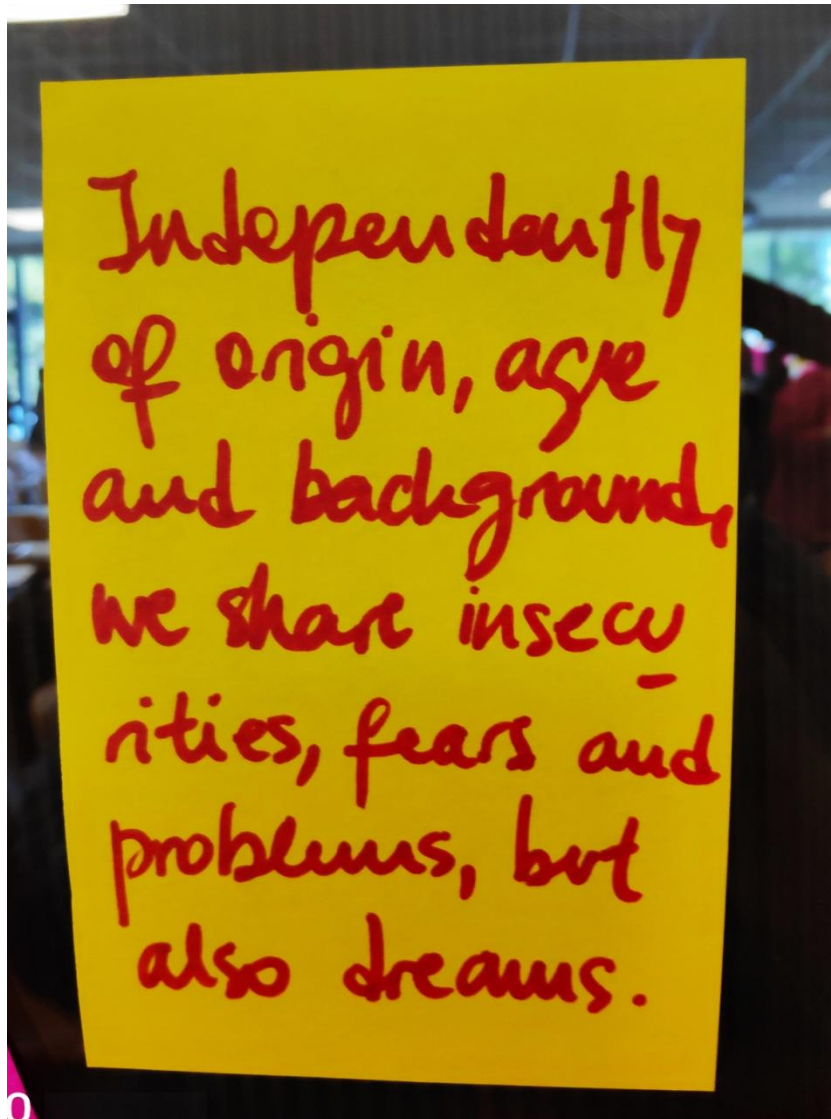 Independently
of origin, age
and background,
we share insecu
rities, fears and
problems, but
also dreams.